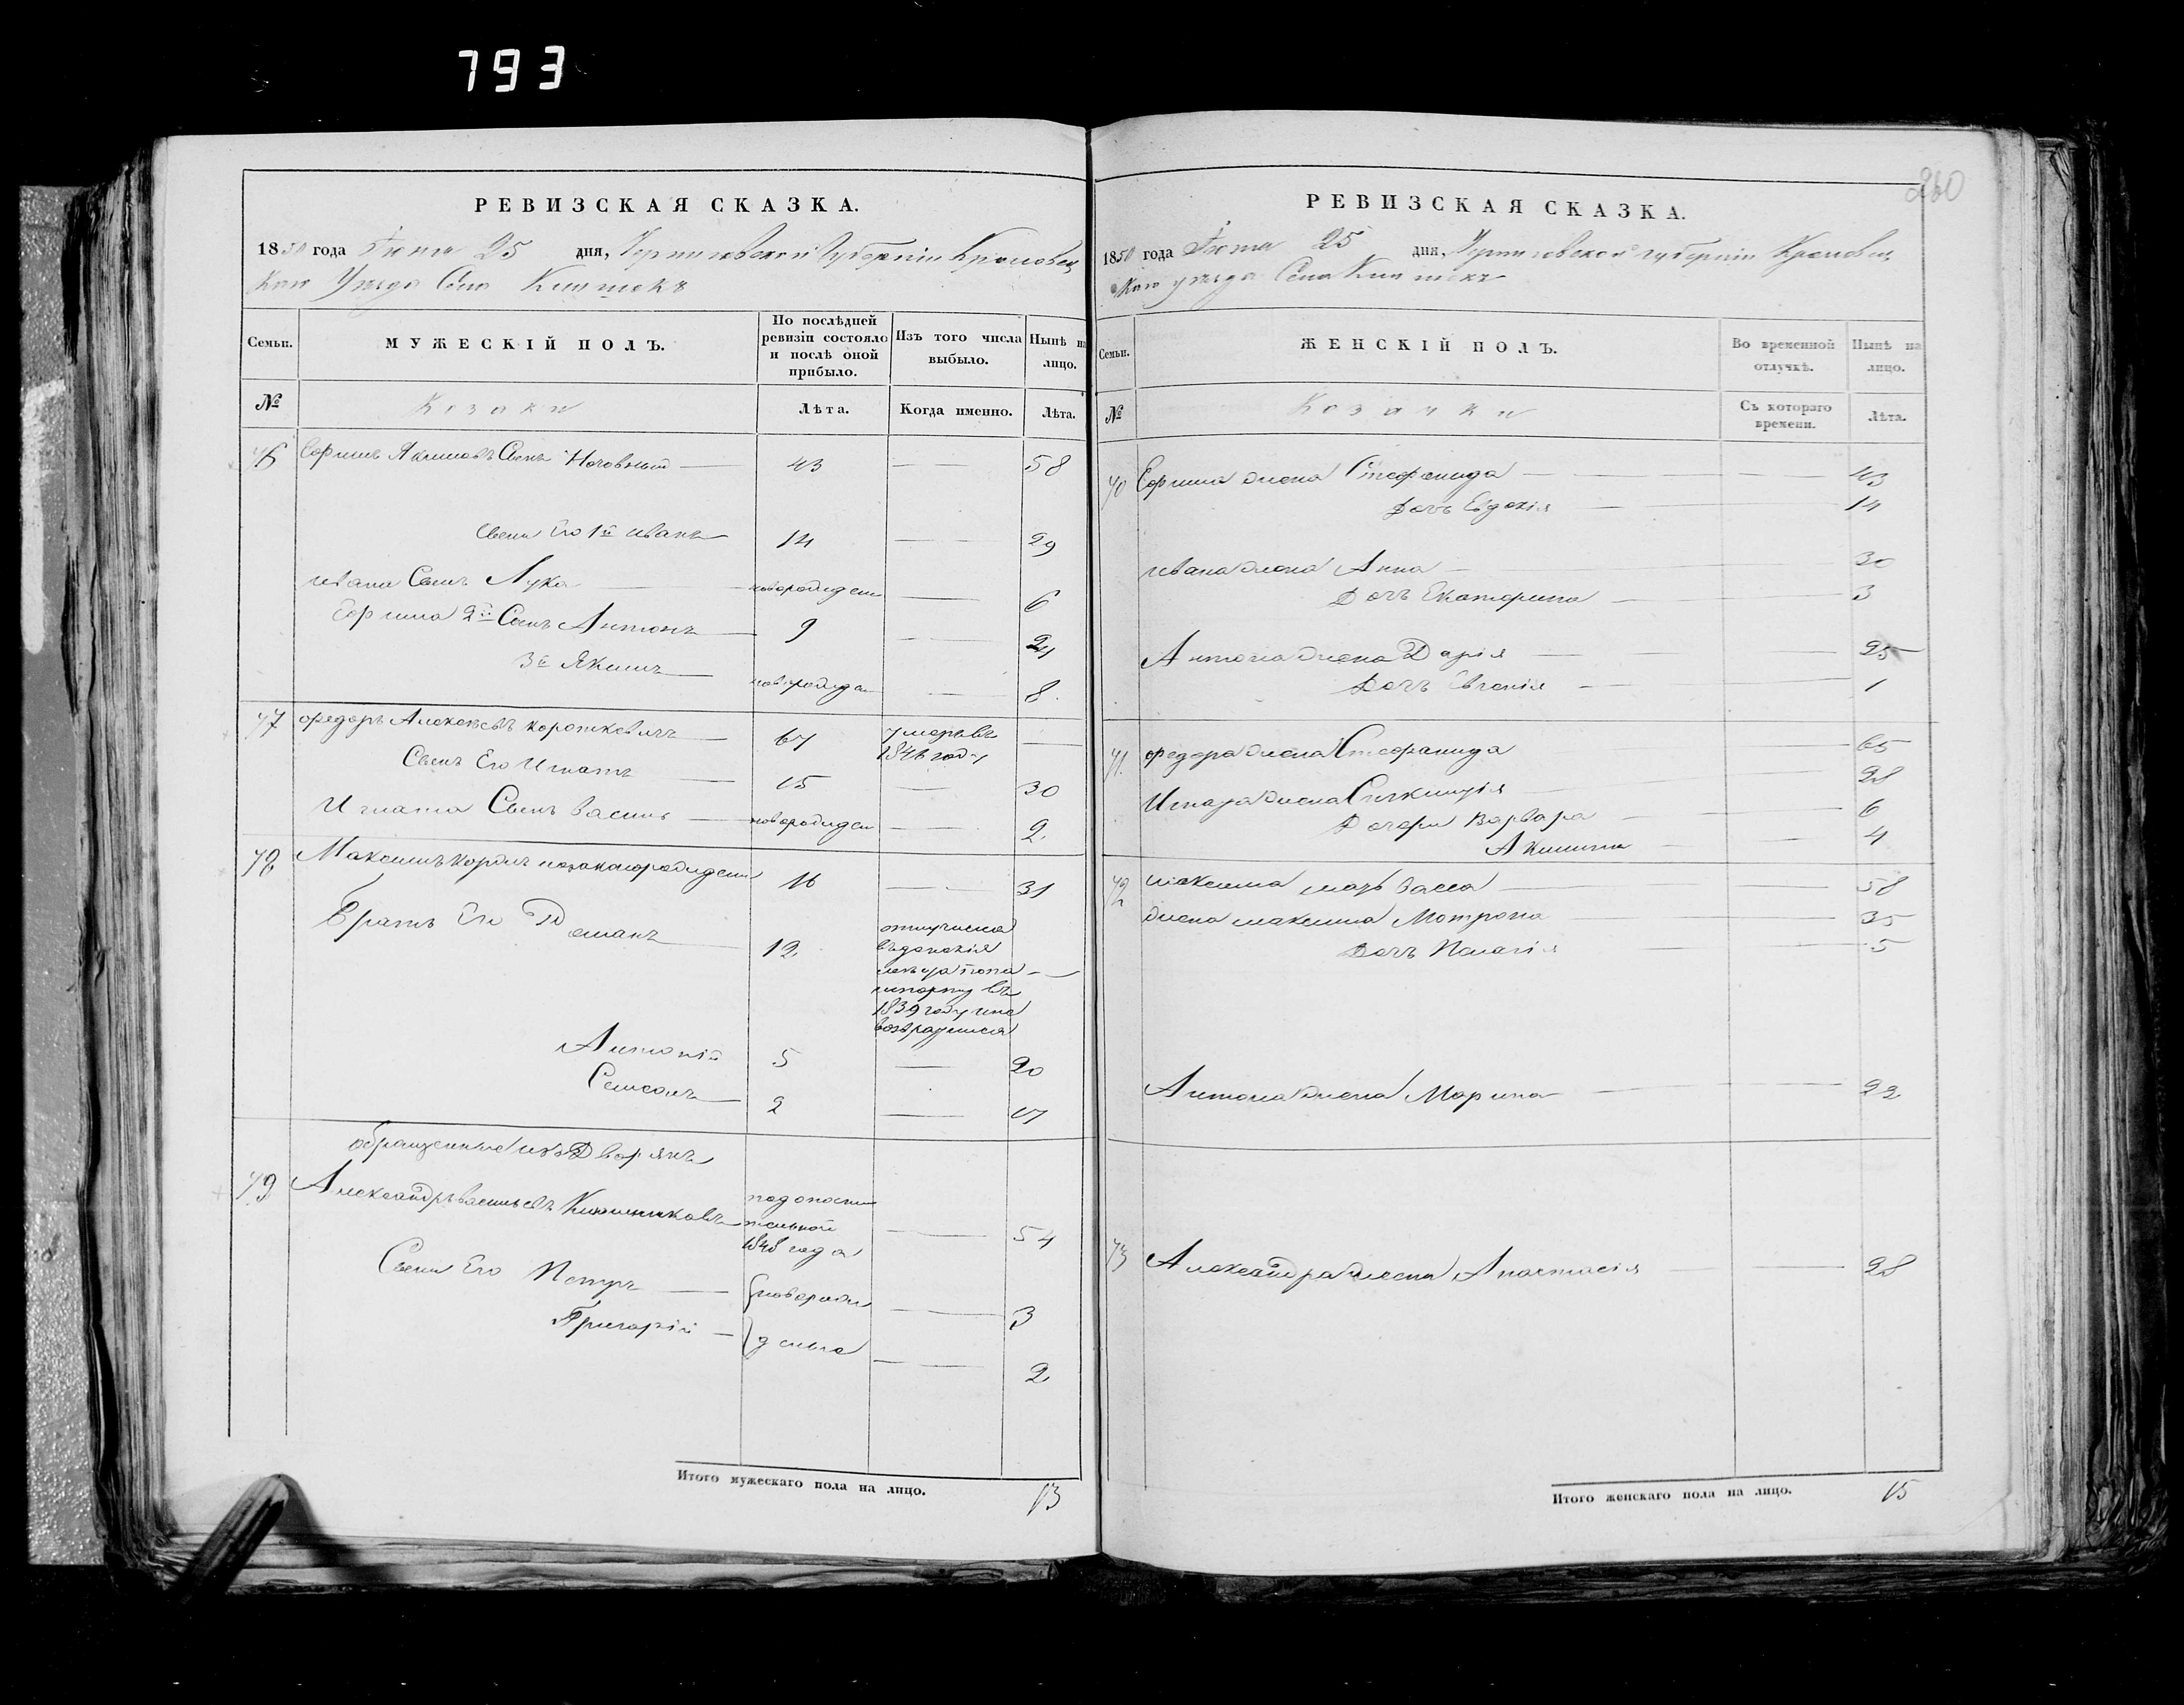 793
260
РЕВИЗСКАЯ СКАЗКА.
1850 года Іюля 25 дня, Черниговской Губерніи Кролевец
каго Уезда Села Клишекъ
Семьи. МУЖЕСКІЙ ПОЛЪ. По послѣдней ревизіи состояло и послѣ оной прибыло. Изъ того числа выбыло. Нынѣ на лицо.
№ Козаки Лѣта. Когда именно. Лѣта.
Ефимъ Акимовъ Сынъ 43 58
Сынъ Его 1й Иванъ 14 29
Ивана Сынъ Лука новорожден 6
Ефима 2й Сынъ Антонъ 9 24
3й Якимъ новорожден 8
Федоръ Алексѣевъ Короткевичъ 67 умеръ въ 1846 году
Сынъ Его Игнатъ 15 30
Игната Сынъ Василь новорожден 2
Максимъ 16 31
Братъ Его Романъ 12 1839 году
Антоній 5 20
Самсонъ 2 17
обращенные изъ Дворянъ
Александръ Васильевъ 1848 года 54
Сыны Его Петръ новорож 3
Григорій денные 2
Итого мужескаго пола на лицо. 13
РЕВИЗСКАЯ СКАЗКА.
1850 года Іюля 25 дня, Черниговской губерніи Кролевец
каго уезда Села Клишекъ
Семьи. ЖЕНСКІЙ ПОЛЪ. Во временной отлучкѣ. Нынѣ на лицо.
№ Козачки Съ котораго времени. Лѣта.
Ефима жена Стефанида 43
Дочь Евдокія 14
Ивана жена Анна 30
Дочь Екатерина 3
Антона жена Дарія 25
Дочь Евгенія 1
Федора жена Стефанида 65
Игната жена 28
Дочери Варвара 6
Акилина 4
Максима мать Васса 58
жена Максима Мотрона 35
Дочь Пелагія 5
Антона жена Марина 22
73 Александра жена Анастасія 28
Итого женскаго пола на лицо. 15